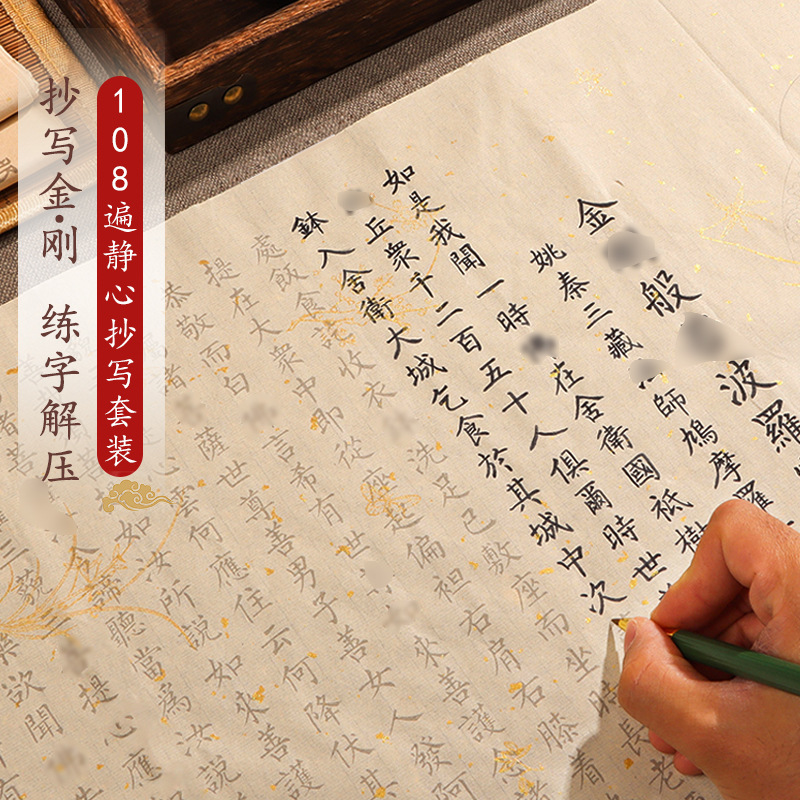 抄写金·刚 练字解压
108遍静心抄写套装
金般波羅
姚秦三藏師鳩摩羅
如是我聞一時在舍衛國祇樹
丘衆千二百五十人俱爾時世
鉢入舍衛大城乞食於其城中次
處飯食訖收衣洗足已敷座而坐時長老
提在大衆中即從座起偏袒右肩右膝着
恭敬而白言希有世來善護
薩世尊善男子善女人發阿
心雲何應住云何降伏其
如汝所說如來善護
諦聽當爲汝說
提心應
欲聞